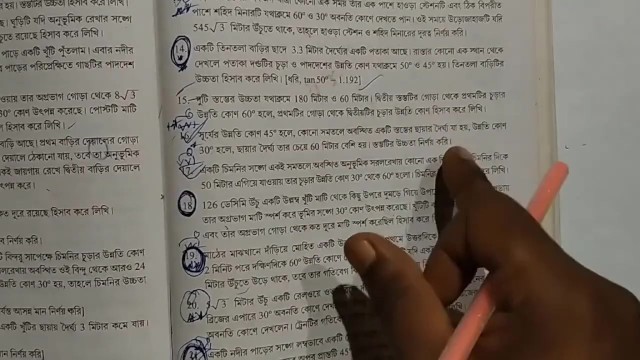 র শহিদ
উন্নতি কোণ হিসাব করে লিখি।
ঘুড়িটি যদি অনুভূমিক রেখার সঙ্গে
রয়েছে হিসাব করে লিখি।
পাড়ে একটি খুঁটি পুঁতলাম। এবার নদীর
র পাড়ের পরিপ্রেক্ষিতে গাছটির পাদদেশ
ওয়ায় তার অগ্রভাগ গোড়া থেকে 8√3
30° কোণ উৎপন্ন করেছে। পোস্টটি মাটি
হিসাব করে লিখি।
বাড়ি আছে। প্রথম বাড়ির দেয়ালের গোড়া
দেয়ালে ঠেকানো যায়, তবে তা অনুভূমিক
একই জায়গায় রেখে দ্বিতীয় বাড়ির দেয়ালে
পন্ন করে।
কত দূরে রয়েছে হিসাব করে লিখি।
ব নির্ণয় করি।
বিন্দুর সাপেক্ষে চিমনির চূড়ার উন্নতি কোণ
সরলরেখায় অবস্থিত ওই বিন্দু থেকে আরও 24
উন্নতি কোণ 30° হয়, তাহলে চিমনির উচ্চতা
র্যন্ত আসন্ন মান নির্ণয় করি]
একটি খুঁটির ছায়ার দৈর্ঘ্য 3 মিটার কমে যায়।
মান নির্ণয় করি]
পাশে শহিদ মিনারটি যথাক্রমে 60° ও 30° অবনতি কোণে দেখতে পান। ওই সময়ে উড়োজাহাজটি যদি
545√3 মিটার উঁচুতে থাকে, তাহলে হাওড়া স্টেশন ও শহিদ মিনারের দূরত্ব নির্ণয় করি।
14. একটি তিনতলা বাড়ির ছাদে 3.3 মিটার দৈর্ঘ্যের একটি পতাকা আছে। রাস্তার কোনো এক স্থান থেকে
দেখলে পতাকা দণ্ডটির চূড়া ও পাদদেশের উন্নতি কোণ যথাক্রমে 50° ও 45° হয়। তিনতলা বাড়িটির
উচ্চতা হিসাব করে লিখি। [ধরি, tan 50° = 1.192]
15. দুটি স্তম্ভের উচ্চতা যথাক্রমে 180 মিটার ও 60 মিটার। দ্বিতীয় স্তম্ভটির গোড়া থেকে প্রথমটির চূড়ার
উন্নতি কোণ 60° হলে, প্রথমটির গোড়া থেকে দ্বিতীয়টির চূড়ার উন্নতি কোণ হিসাব করে লিখি।
সূর্যের উন্নতি কোণ 45° হলে, কোনো সমতলে অবস্থিত একটি স্তম্ভের ছায়ার দৈর্ঘ্য যা হয়, উন্নতি কোণ
30° হলে, ছায়ার দৈর্ঘ্য তার চেয়ে 60 মিটার বেশি হয়। স্তম্ভটির উচ্চতা নির্ণয় করি।
একটি চিমনির সঙ্গে একই সমতলে অবস্থিত অনুভূমিক সরলরেখায় কোনো এক চিমনির দিকে
50 মিটার এগিয়ে যাওয়ায় তার চূড়ার উন্নতি কোণ 30° থেকে 60° হলো। চিমনির লিখি।
18. 126 ডেসিমি উঁচু একটি উল্লম্ব খুঁটি মাটি থেকে কিছু উপরে দুমড়ে গিয়ে উপরের
তার অগ্রভাগ মাটি স্পর্শ করে ভূমির সঙ্গে 30° কোণ উৎপন্ন করেছে। খুঁটিটি
এবং তার অগ্রভাগ গোড়া থেকে কত দূরে মাটি স্পর্শ করেছিল হিসাব করে
19. মাঠের মাঝখানে দাঁড়িয়ে মোহিত একটি উত্তরদিকে
2 মিনিট পরে দক্ষিণদিকে 60° উন্নতি কোণে
মিটার উঁচুতে উড়ে থাকে, তবে তার গতিবেগ
20. √3 মিটার উঁচু একটি রেলওয়ে
ব্রিজের এপারে 30° অবনতি কোণে দেখ
অবনতি কোণে দেখলেন। ট্রেনটির গতি
একটি নদীর পাড়ের সঙ্গে লম্বভাবে একটি
অপর প্রান্তটি 45°